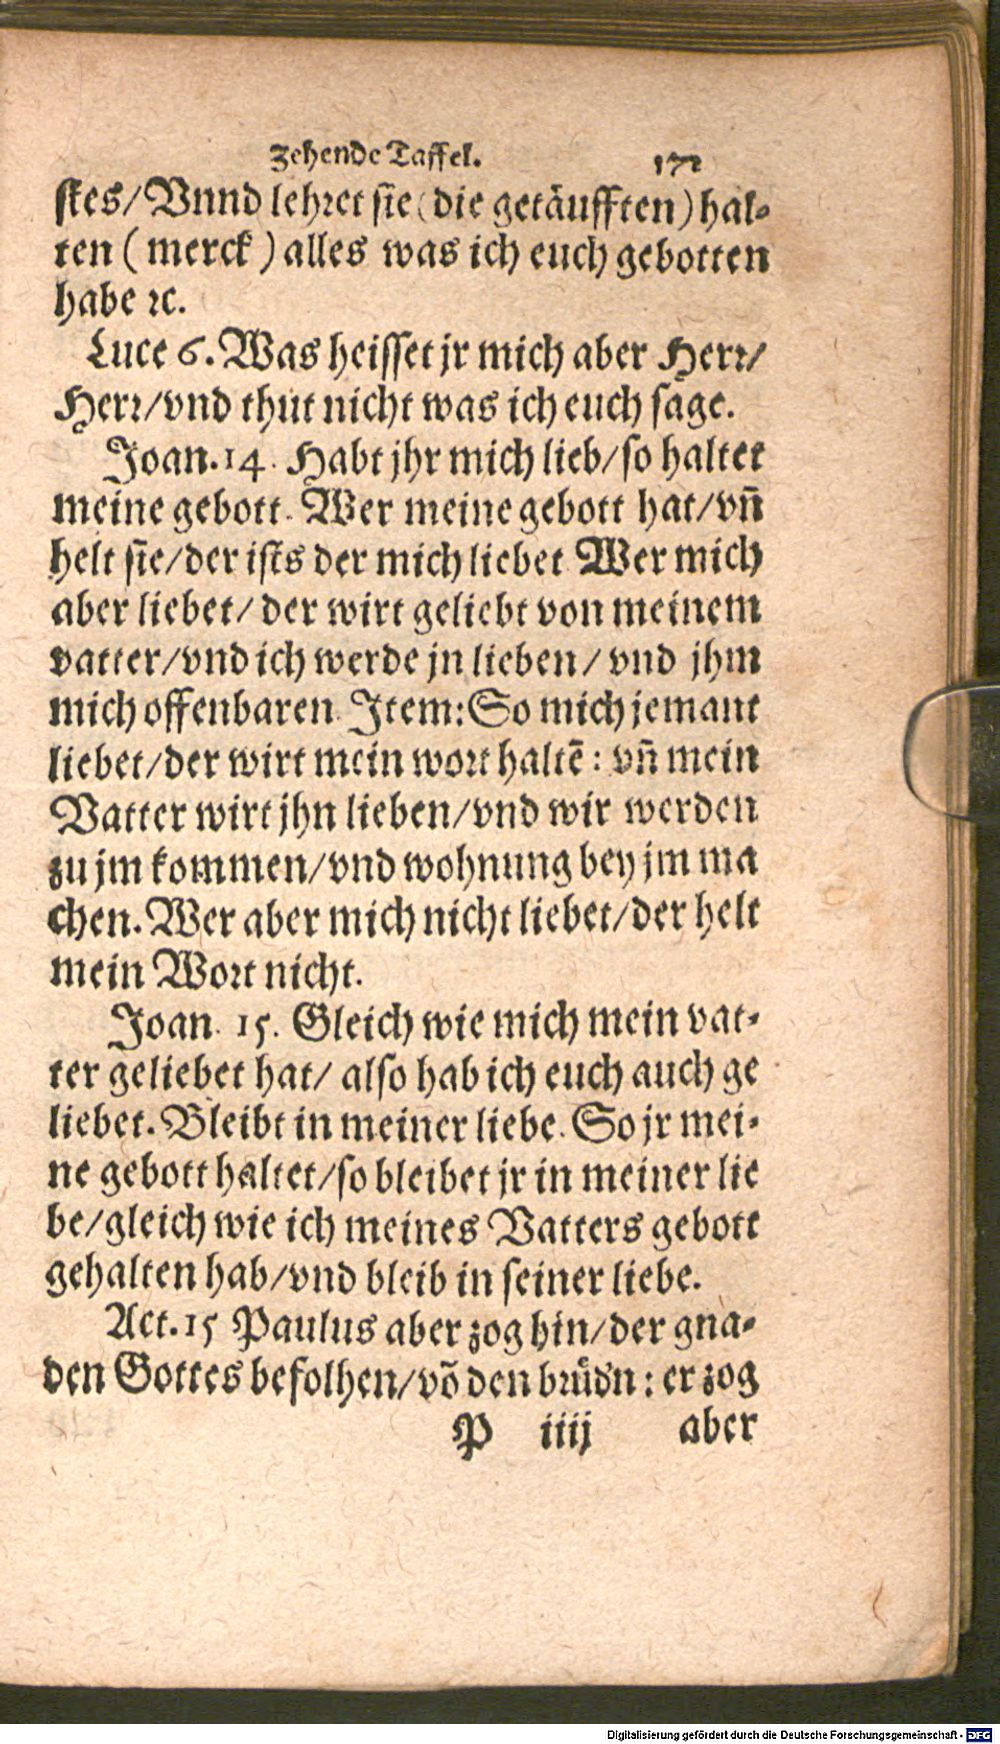 Zehende Taffel. 172
stes/Vnnd lehret sie (die getäufften) hal-
ten (merck) alles was ich euch gebotten
habe ꝛc.
Luce 6. Was heisset jr mich aber Herr/
Herr/vnd thut nicht was ich euch sage.
Joan. 14. Habt jhr mich lieb/so haltet
meine gebott. Wer meine gebott hat/vn̄
helt sie/der ists der mich liebet Wer mich
aber liebet/der wirt geliebt von meinem
vatter/vnd ich werde jn lieben/vnd jhm
mich offenbaren. Item: So mich jemant
liebet/der wirt mein wort haltē: vn̄ mein
Vatter wirt jhn lieben/vnd wir werden
zu jm kommen/vnd wohnung bey jm ma
chen. Wer aber mich nicht liebet/der helt
mein Wort nicht.
Joan. 15. Gleich wie mich mein vat-
ter geliebet hat/ also hab ich euch auch ge
liebet. Bleibt in meiner liebe. So jr mei-
ne gebott haltet/so bleibet jr in meiner lie
be/gleich wie ich meines Vatters gebott
gehalten hab/vnd bleib in seiner liebe.
Act. 15 Paulus aber zog hin/der gna-
den Gottes befolhen/võ den brůdn: er zog
P iiij aber
Digitalisierung gefördert durch die Deutsche Forschungsgemeinschaft - DFG